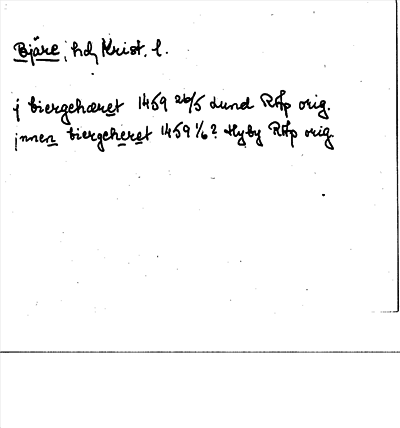 Bjäre, hd, Krist. l.
j biergehæret 1459 26/5 Lund RAp orig.
jnnen biergeheret 1459 1/6? Hyby RAp orig